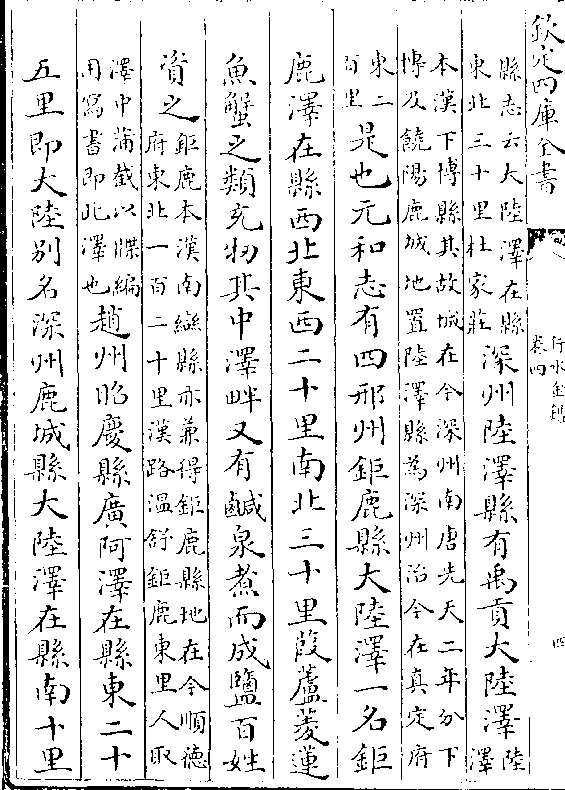 欽定四庫全書
行水金鑑
卷四
四
縣志云大陸澤在縣
東北三十里杜家莊
深州陸澤縣有禹貢大陸澤
陸
澤
本漢下博縣其故城在今深州南唐先天二年分下
博及饒陽鹿城地置陸澤縣為深州治今在真定府
東二
百里
是也元和志有四邢州鉅鹿縣大陸澤一名鉅
鹿澤在縣西北東西二十里南北三十里葭蘆菱蓮
魚蟹之類充牣其中澤畔又有鹹泉煮而成鹽百姓
資之
鉅鹿本漢南䜌縣亦兼得鉅鹿縣地在今順德
府東北一百二十里漢路溫舒鉅鹿東里人取
澤中蒲截以牒編
用寫書即此澤也
趙州昭慶縣廣阿澤在縣東二十
五里即大陸別名深州鹿城縣大陸澤在縣南十里